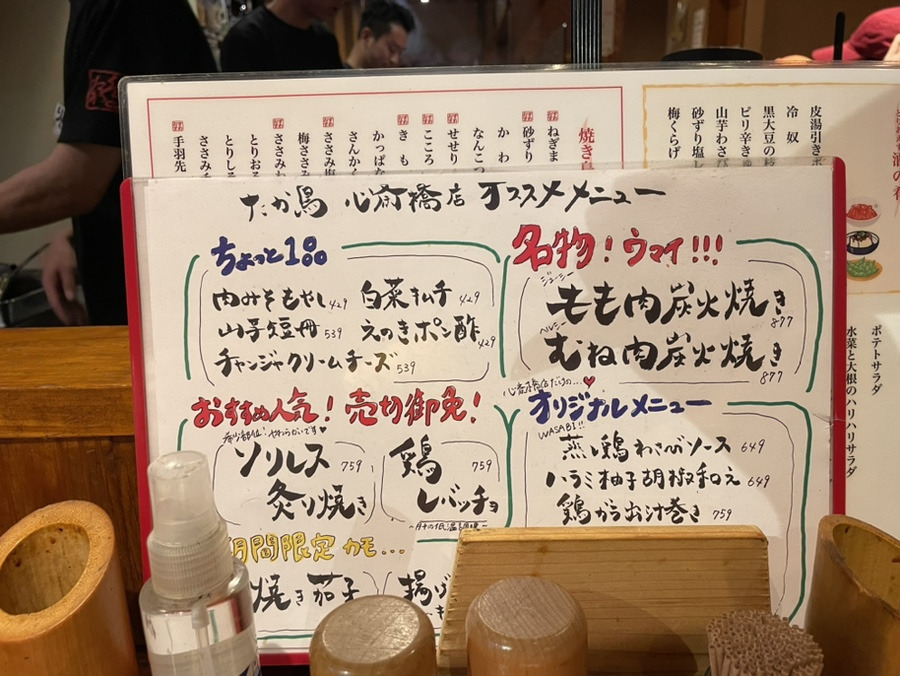 焼き鳥
ねぎま
砂ずり
かわ
なんこつ
せせり
こころ
きも
かっぱな
さんかく
ささみ塩
梅ささみ
ささみわ
とりおろ
とりしそ
ささみチ
手羽先
皮湯引きポ
冷奴
黒大豆の枝
ピリ辛きゅ
山芋わさび
砂ずり塩し
梅くらげ
ポテトサラダ
水菜と大根のハリハリサラダ
たか鳥 心斎橋店 オススメメニュー
ちょっと1品
肉みそもやし 429
白菜キムチ 429
山芋短冊 539
えのきポン酢 429
チャンジャクリームチーズ 539
名物!ウマイ!!!
ジューシー
もも肉炭火焼き 877
ヘルシー
むね肉炭火焼き 877
おすすめ人気!売切御免!
希少部位!やわらかいです♥
ソリレス 759
炙り焼き
鶏 759
レバッチョ
~肝の低温調理~
心斎橋店だけの...♥
オリジナルメニュー
WASABI!!
蒸し鶏わさびソース 649
ハラミ柚子胡椒和え 649
鶏がら出汁巻き 759
期間限定カモ...
焼き茄子
揚げ